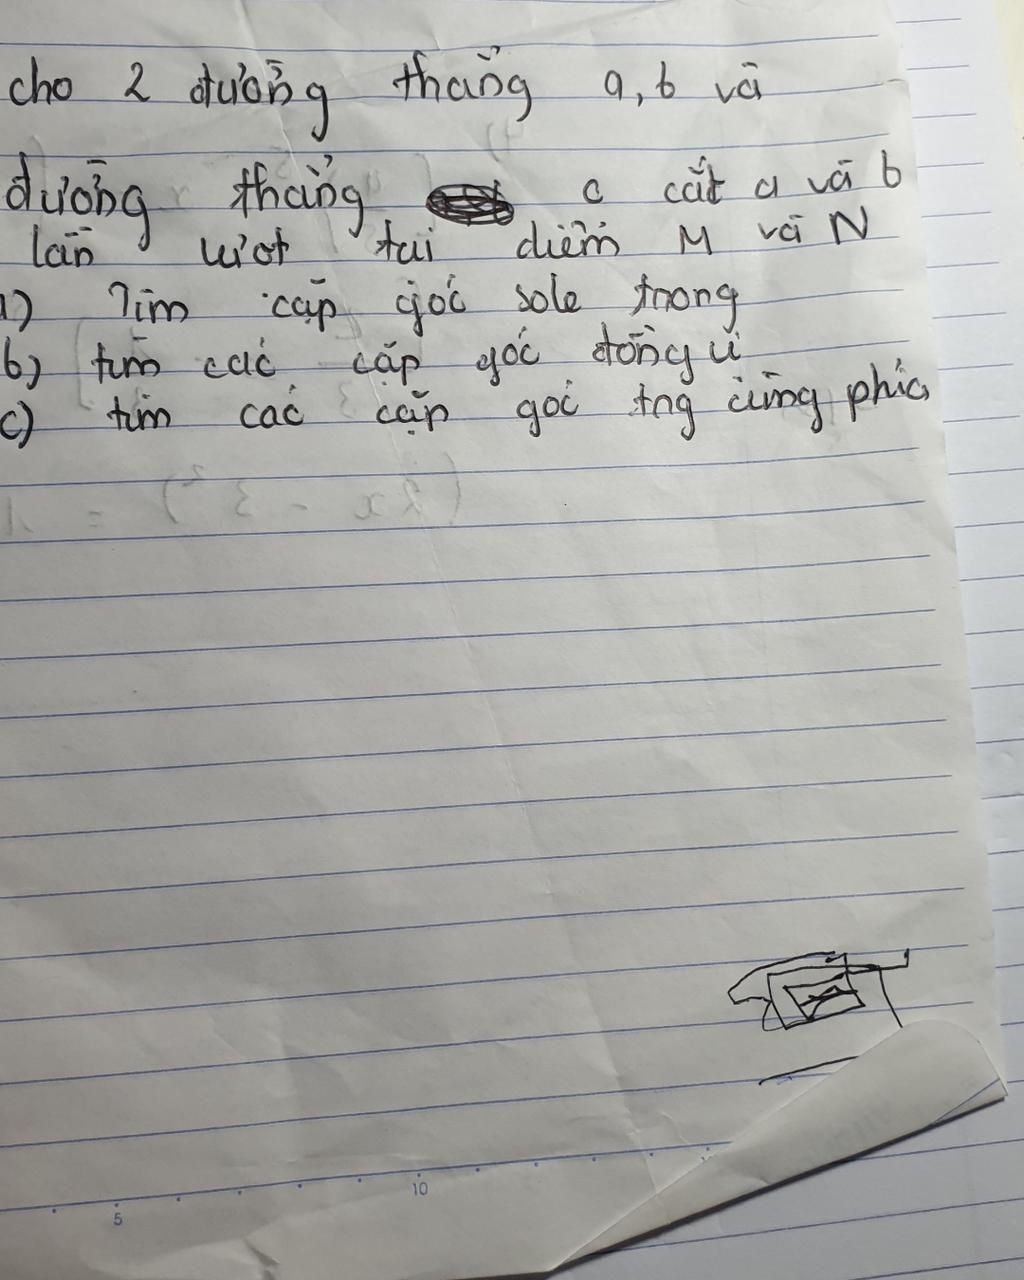 cho 2 đường thẳng a, b và
đường thẳng c cắt a và b
lần lượt tại điểm M và N
a) Tìm cặp góc sole trong
b) tìm các cặp góc đồng vị
c) tìm các cặp góc tng cùng phía
(2x - 3²) = 1
5 10